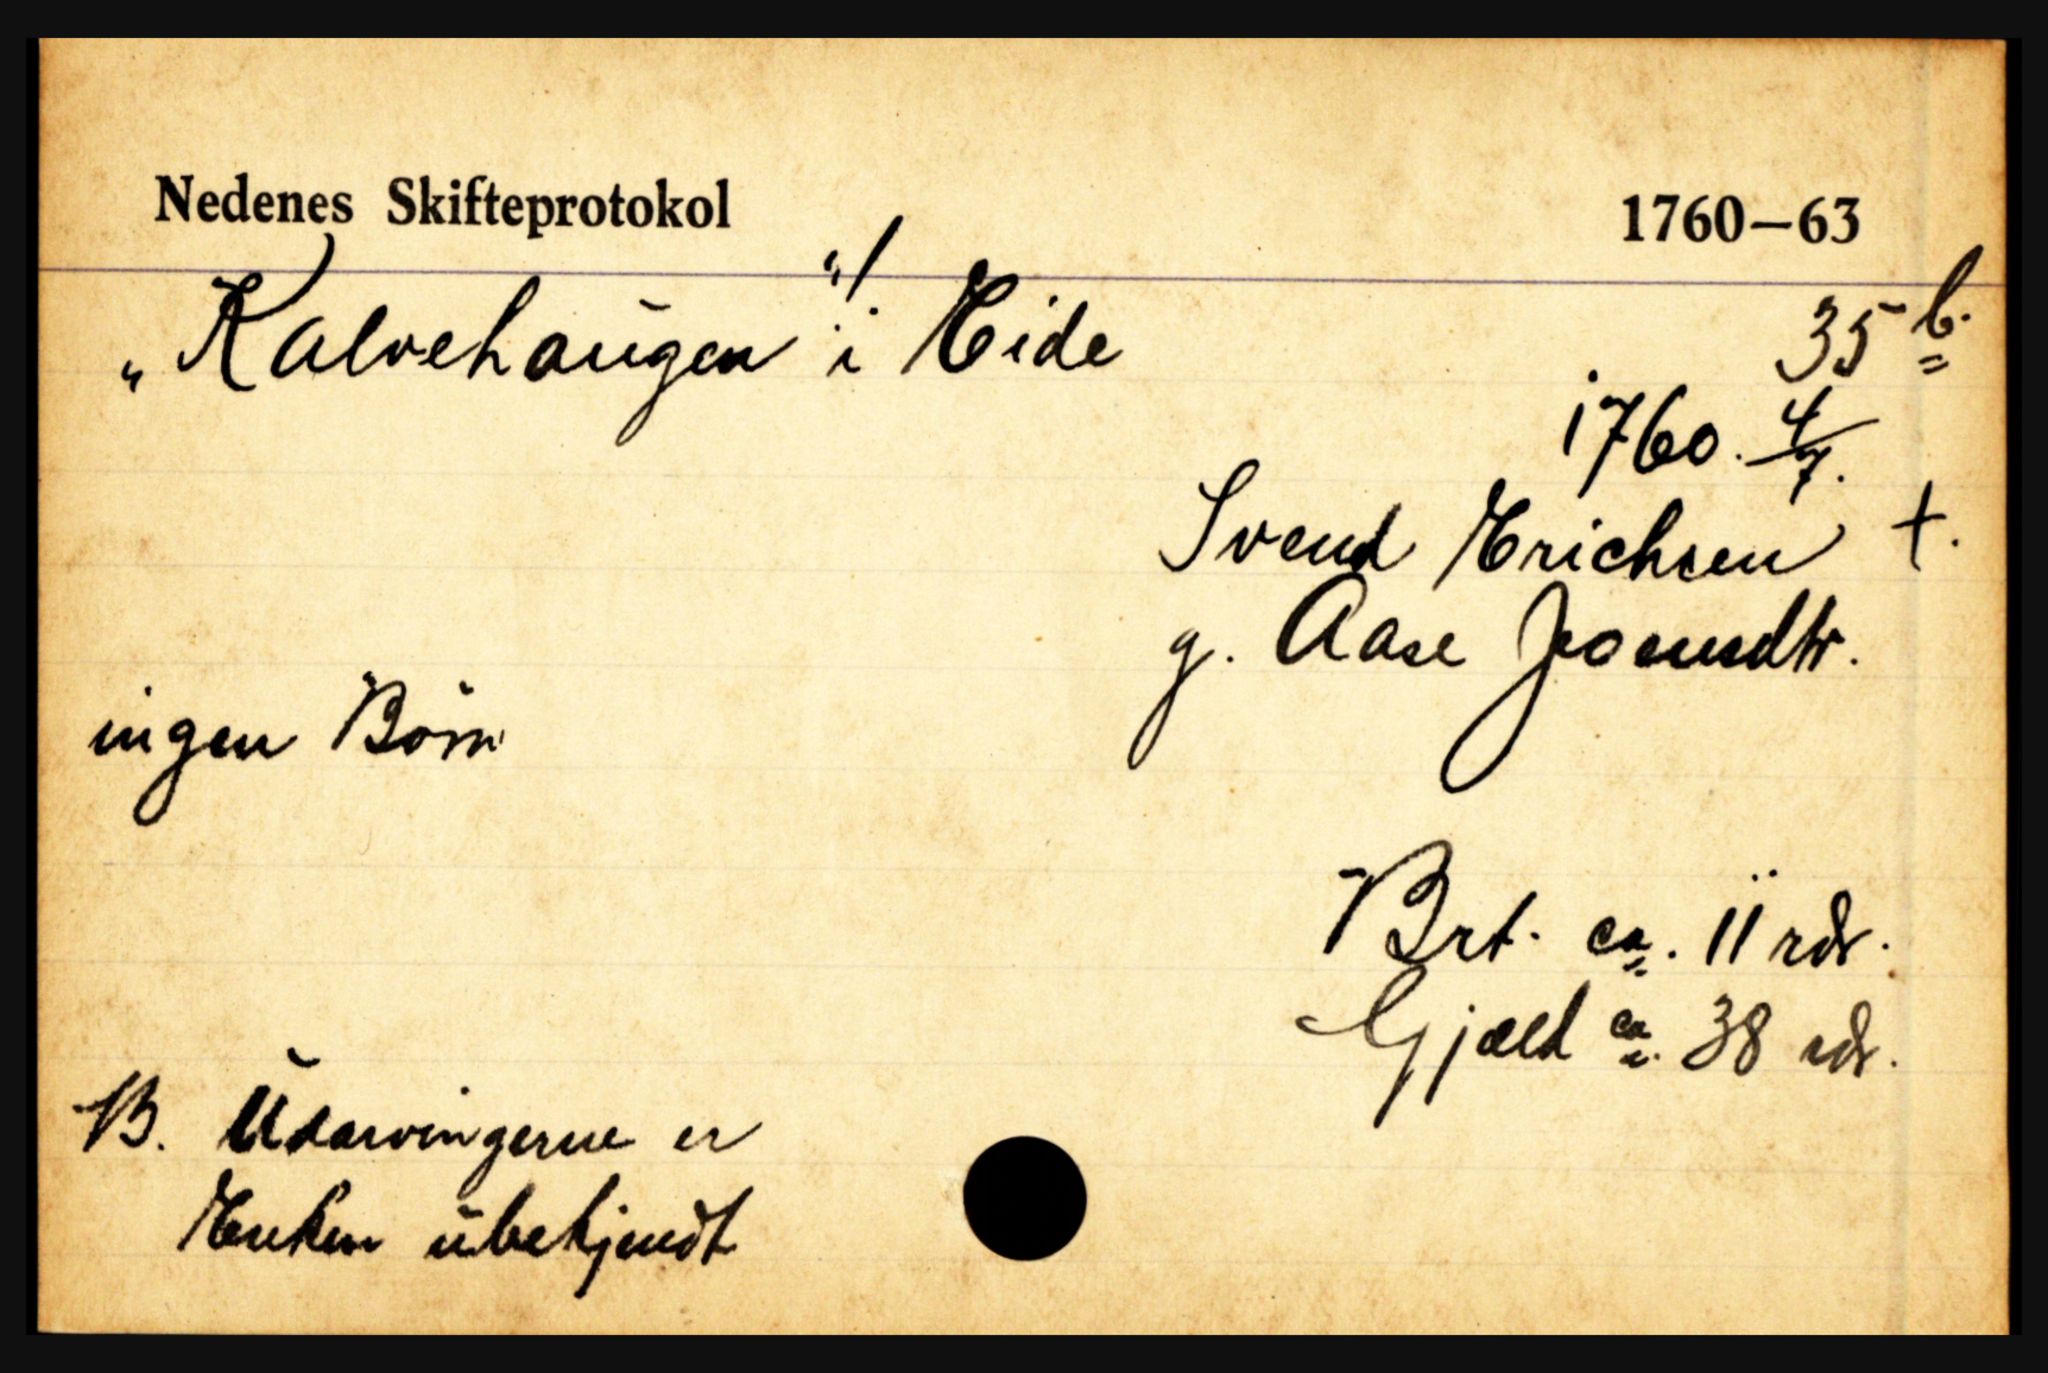 Nedenes Skifteprotokol 1760–63
„Kalvehaugen“/ i Eide 35 b.
1760. 4/7.
Svend Erichsen †.
g. Aase
ingen Börn
Brt. ca. 11 rdr.
Gjæld ca. 38 rdr.
B. Udarvingerne er
Enken ubekjendt